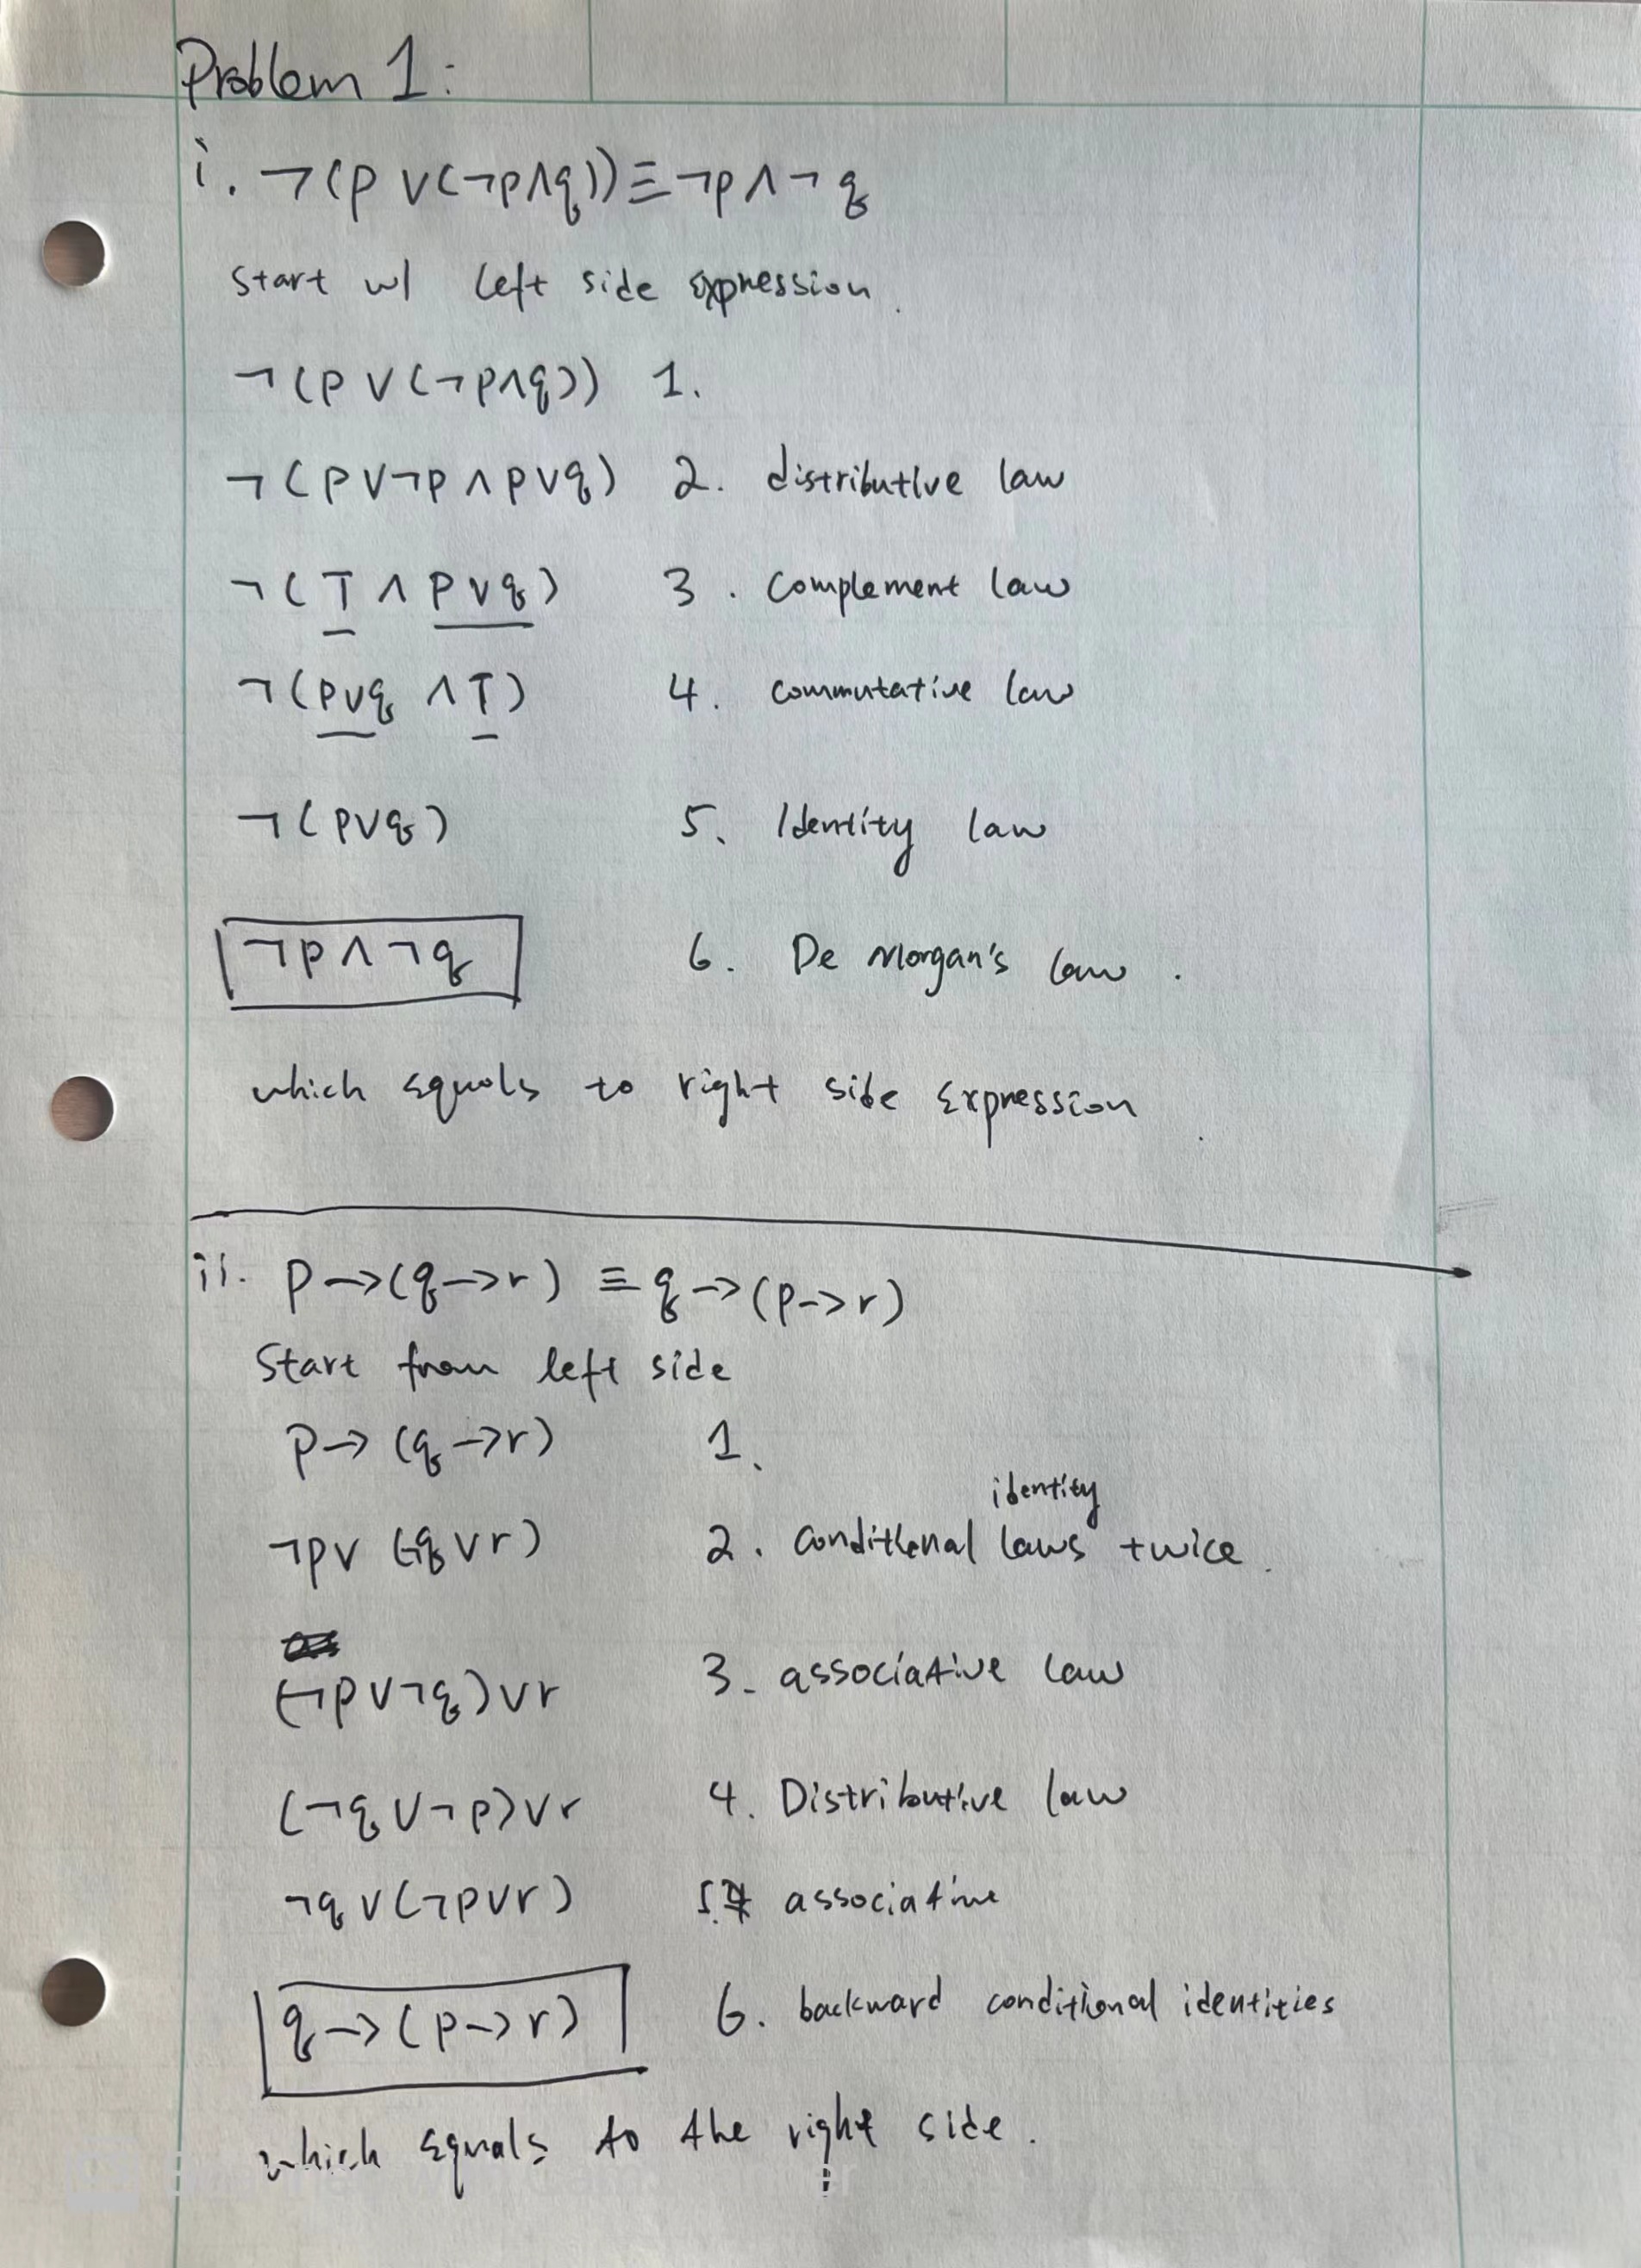 Problem 1:
i. ¬(p ∨(¬p∧q))≡¬p∧¬q
start w/ left side expression.
¬(p ∨(¬p∧q)) 1.
¬(p∨¬p ∧ p∨q) 2. distributive law
¬(T ∧ p∨q) 3. Complement law
¬(p∨q ∧T) 4. commutative law
¬(p∨q) 5. Identity law
¬p∧¬q 6. De Morgan's law.
which equals to right side expression.
ii. p→(q→r) ≡ q→(p→r)
Start from left side
p→(q→r) 1.
identity
¬p∨(¬q∨r) 2. conditional laws twice.
(¬p∨¬q)∨r 3. associative law
(¬q∨¬p)∨r 4. Distributive law
¬q∨(¬p∨r) 5. associative
q→(p→r) 6. backward conditional identities
which equals to the right side.